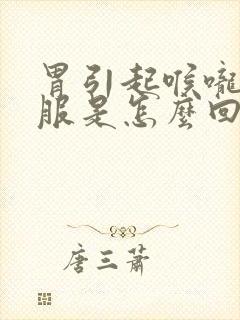 胃引起喉嚨
服是怎麼回
唐三蕭